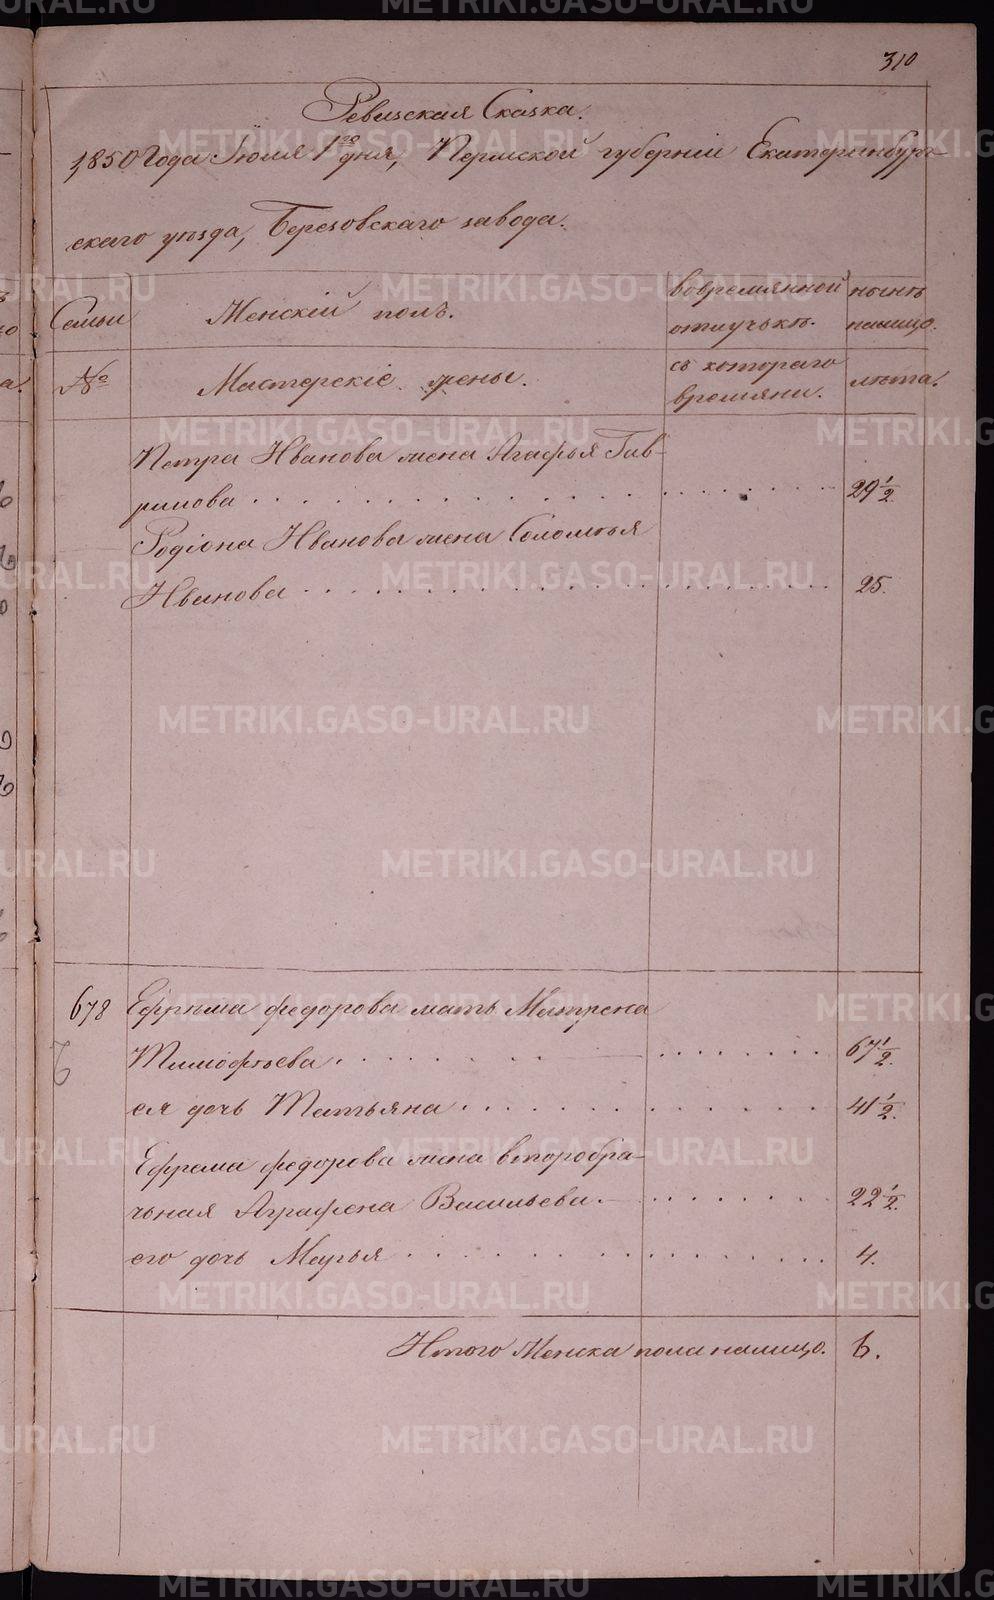 310
Ревизская Сказка.
1850 Года Июля 1го дня, Пермской губернiи Екатеринбург-
скаго уѣзда, Березовскаго завода.
Семьи
Женскiй полъ.
вовремянной
отлучькѣ.
нынѣ
налицо.
№
Мастерскiе жены.
съ котораго
времяни.
лѣта.
Петра Иванова жена Агафья Гав-
рилова 29 1/2.
Родiона Иванова жена Соломѣя
Иванова 25.
678 Ефрѣма федорова мать Матрена
Тимофѣева 67 1/2.
ея дочь Татьяна 41 1/2.
Ефрема федорова жена второбра-
чьная Аграфена Васильева 22 1/2.
его дочь Марья 4.
Итого Женска пола налицо. 6.
METRIKI.GASO-URAL.RU